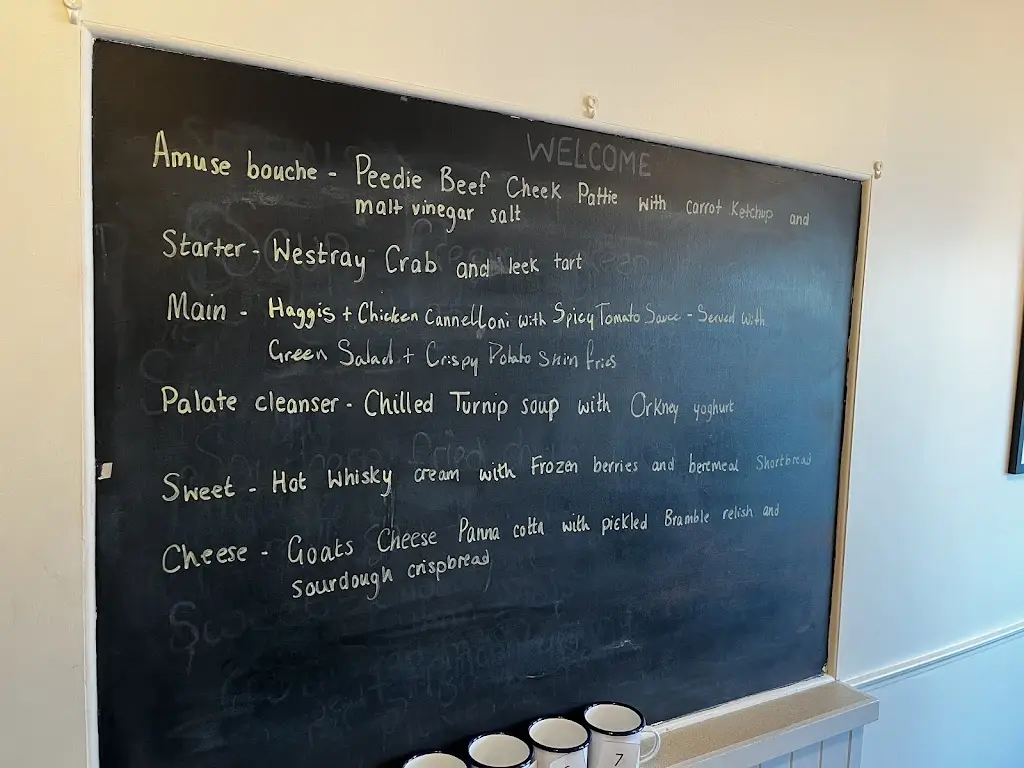 WELCOME
Amuse bouche - Peedie Beef Cheek Pattie with carrot Ketchup and
malt vinegar salt
Starter - Westray Crab and leek tart
Main - Haggis + Chicken Cannelloni with Spicy Tomato Sauce - Served with
Green Salad + Crispy Potato Skin fries
Palate cleanser - Chilled Turnip soup with Orkney yoghurt
Sweet - Hot Whisky cream with Frozen berries and beremeal Shortbread
Cheese - Goats Cheese Panna cotta with pickled Bramble relish and
sourdough crispbread
7